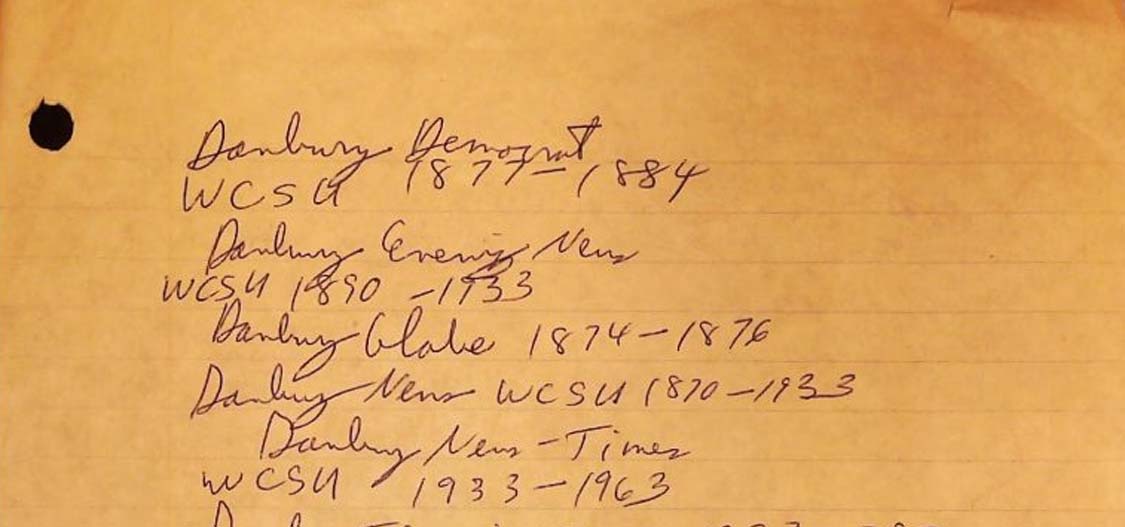 Danbury Democrat
WCSU 1877-1884
Danbury Evening News
WCSU 1890 -1933
Danbury Globe 1874-1876
Danbury News WCSU 1870-1933
Danbury News-Times
WCSU 1933-1963